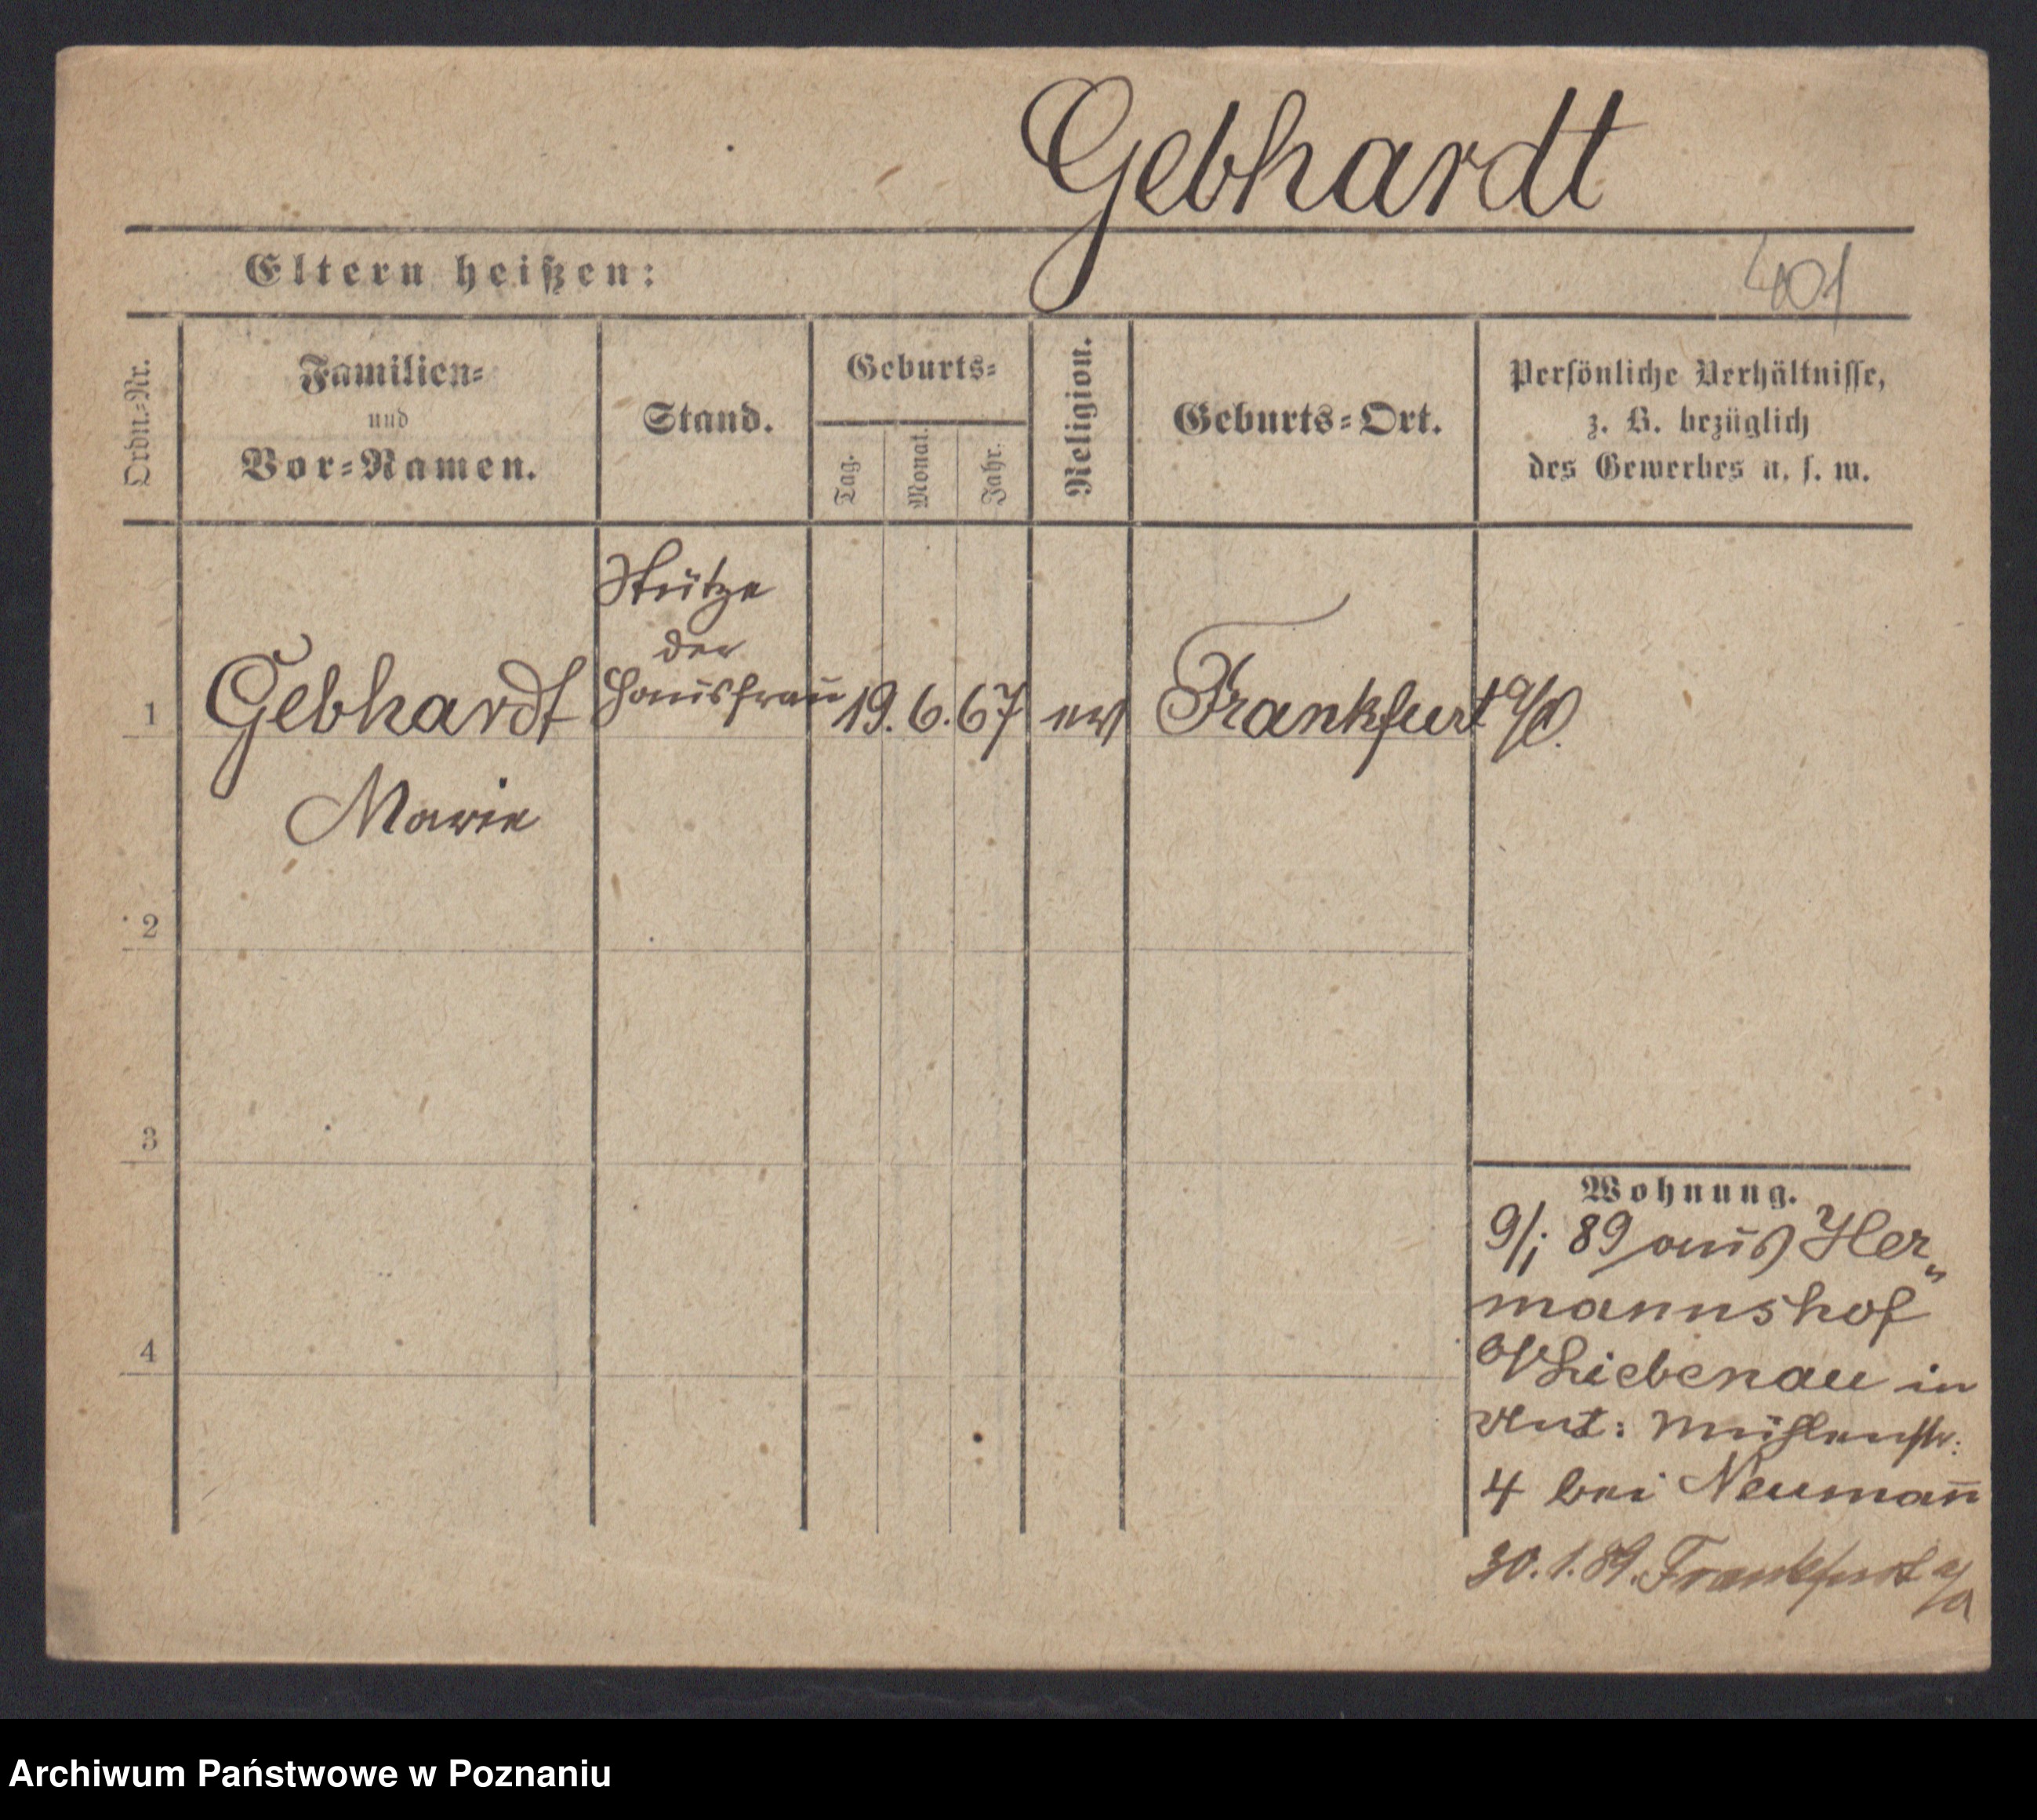 Gebhardt
Eltern heißen:
401
Ordn.-Nr.
Familien-
und
Vor-Namen.
Stand.
Geburts-
Tag.
Monat.
Jahr.
Religion.
Geburts-Ort.
Persönliche Verhältnisse,
z. B. bezüglich
des Gewerbes u. s. w.
Stütze
der
Hausfrau
1 Gebhardt 19. 6. 67 ev Frankfurt a/O.
Marie
2
3
4
Wohnung.
9/1 89 aus Her„
mannshof
Liebenau in
Mühlenstr:
4 bei Neumañ
30.1.89. Frankfurt a/O
Archiwum Państwowe w Poznaniu